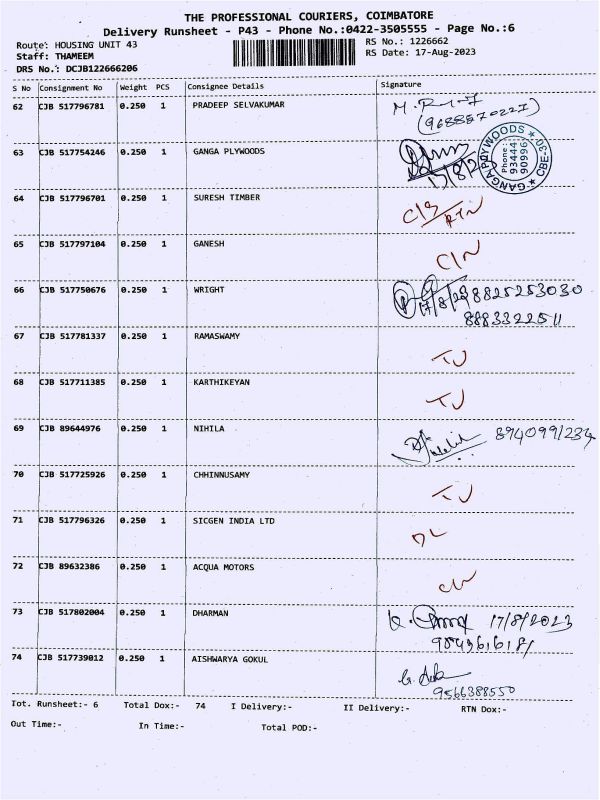 THE PROFESSIONAL COURIERS, COIMBATORE
Delivery Runsheet - P43 - Phone No.:0422-3505555 - Page No.:6
Route: HOUSING UNIT 43 RS No.: 1226662
Staff: THAMEEM RS Date: 17-Aug-2023
DRS No.: DCJB122666206
S No Consignment No Weight PCS Consignee Details Signature
62 CJB 517796781 0.250 1 PRADEEP SELVAKUMAR
63 CJB 517754246 0.250 1 GANGA PLYWOODS 17/8/23 GANGA PLYWOODS ★ CBE-30. ★ Phone: 93444 90996
64 CJB 517796701 0.250 1 SURESH TIMBER RTN
65 CJB 517797104 0.250 1 GANESH
66 CJB 517750676 0.250 1 WRIGHT 17/8/23 8825253030
8883322511
67 CJB 517781337 0.250 1 RAMASWAMY TJ
68 CJB 517711385 0.250 1 KARTHIKEYAN TJ
69 CJB 89644976 0.250 1 NIHILA 8940991234
70 CJB 517725926 0.250 1 CHHINNUSAMY TJ
71 CJB 517796326 0.250 1 SICGEN INDIA LTD DL
72 CJB 89632386 0.250 1 ACQUA MOTORS
73 CJB 517802004 0.250 1 DHARMAN 17/8/2023
74 CJB 517739012 0.250 1 AISHWARYA GOKUL
9566388550
Tot. Runsheet:- 6 Total Dox:- 74 I Delivery:- II Delivery:- RTN Dox:-
Out Time:- In Time:- Total POD:-